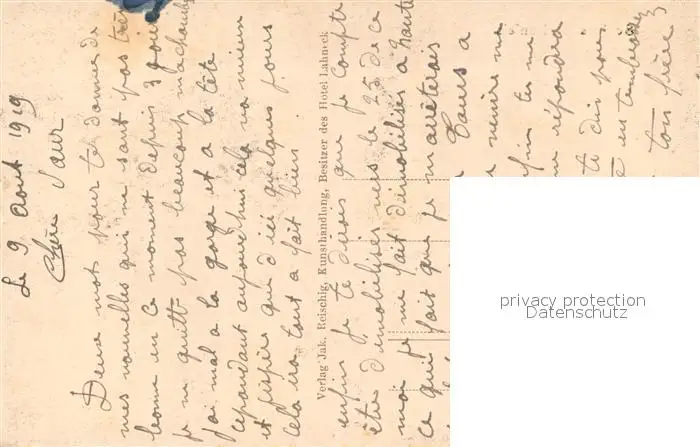 Le 9 Aout 1919
Chère Sœur
Deux mots pour te donner de
mes nouvelles qui ne sont pas très
bonne en ce moment depuis 3 jours
je ne quitte pas beaucoup ma chambre
j'ai mal a la gorge et a la tête
cependant aujourd'hui cela va mieux
et j'espère que d'ici quelques jours
cela ira tout a fait bien.
Verlag Jak. Reischig, Kunsthandlung, Besitzer des Hotel Lahneck
enfin je te dirais que je compte
être démobiliser vers le 25 de ce
moi je me fait démobiliser a Nante
ce qui fait que je m'arrêterais
a Tours a
me
enfin tu me
répondra
te dis pour
ton frère
privacy protection
Datenschutz